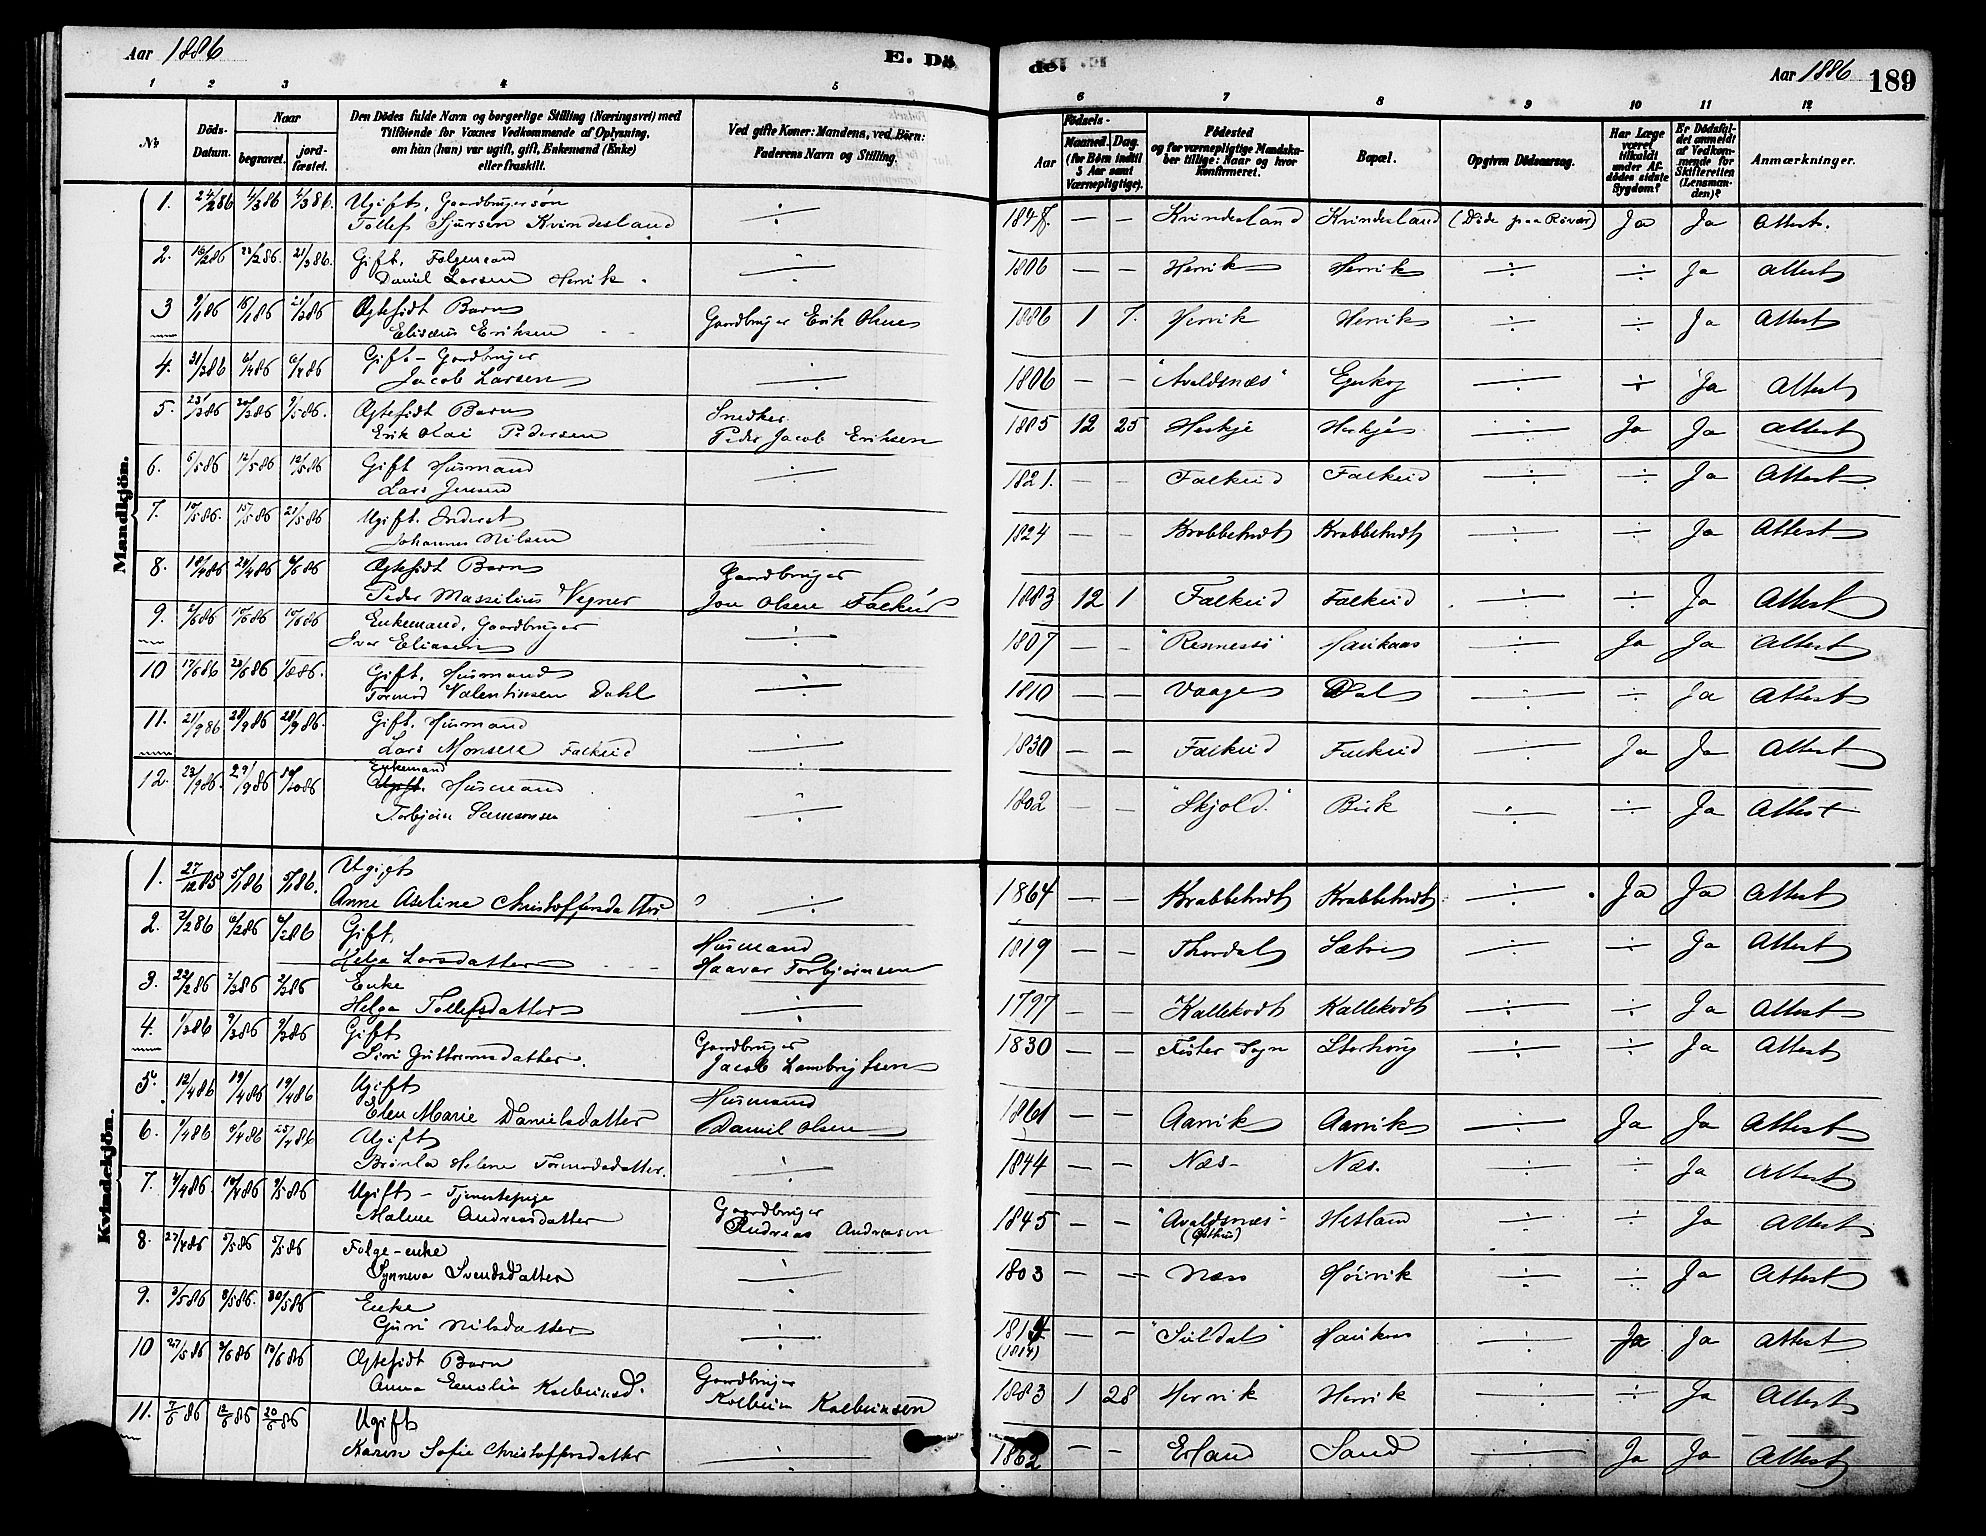 Aar 1886
E. Dö
de.
Aar 1886
189
1 2 3 4 5 6 7 8 9 10 11 12
No
Döds-Datum.
Naar
begravet.
jordfæstet.
Den Dödes fulde Navn og borgerlige Stilling (Næringsvei) med
Tilföiende for Voxnes Vedkommende af Oplysning,
om han (hun) var ugift, gift, Enkemand (Enke)
eller fraskilt.
Ved gifte Koner: Mandens, ved Börn:
Faderens Navn og Stilling.
Födsels-
Aar
Maaned. Dag.
(for Börn indtil 5 Aar samt Værnepligtige).
Födested
og for værnepligtige Mandskaber tillige: Naar og hvor konfirmeret.
Bopæl.
Opgiven Dödsaarsag.
Har Læge været tilkaldt under Afdödes sidste Sygdom?
Er Dödsfaldet anmeldt af Vedkommende for Skifteretten (Lensmanden)?
Anmærkninger.
Mandkjön.
1. 24/2 86 4/3 86 4/3 86. Ugift, Gaardbrugersøn
Tollef Sjursen Kvindesland ÷ 1847. — — Kvindesland Kvindesland (Døde paa Røvær) Ja Ja Attest.
2. 16/2 86 86. 21/3 86. Gift, Følgemand
Daniel Larsen Hervik. ÷ 1806 — — Hervik Hervik ÷ ÷ Ja Attest
3 9/1 86 16/1 86 21/3 86 Ægtefødt Barn
Elisæus Eriksen Gaardbruger Erik Olsen 1886 1 7. Hervik Hervik ÷ ÷ Ja Attest
4. 31/3 86 6/4 86 6/4 86 Gift - Gaardbruger
Jacob Larsen ÷ 1806 — — "Avaldsnæs" ÷ ÷ Ja Attest
5. 23/3 86 30/3 86 9/5 86. Ægtefødt Barn
Erik Olai Pedersen Snedker
Peder Jacob Eriksen 1885 12 25 Heskje Heskje ÷ Ja Ja Attest
6. 5/5 86 12/5 86 12/5 86 Gift Husmand
Lars Jensen ÷ 1821. — — Falkeid Falkeid ÷ ÷ Ja Attest
7. 10/5 86. 15/5 86 21/5 86 Ugift. Inderst
Johannes Nilsen ÷ 1824 — — Krabbetveit Krabbetveit ÷ ÷ Ja Attest
8. 19/4 86 24/4 86 6/6 86 Ægtefødt Barn
Peder Massilius Vegner Gaardbruger
Jon Olsen Falkeid 1883 12 1 Falkeid Falkeid ÷ ÷ Ja Attest
9. 2/6 86 10/6 86 10/6 86 Enkemand, Gaardbruger
Ivar Eliasen ÷ 1807 — — "Rennesø" Haukaas ÷ Ja Ja Attest
10 17/6 86 23/6 86 86. Gift. Husmand
Tormod Valentinsen Dahl ÷ 1810 — — Vaage Dal ÷ ÷ Ja Attest
11. 21/9 86 28/9 86 28/9 86. Gift. Husmand
Lars Monsen Falkeid ÷ 1830 — — Falkeid Falkeid ÷ Ja Ja Attest
12. 23/9 86. 29/9 86 10/10 86 Enkemand
Ugift. Husmand
Torbjørn Samsonsen ÷ 1802 — — "Skjold." Birk ÷ ÷ Ja Attest
Kvindekjön.
1. 27/12 85 5/1 86 5/1 86. Ugift
Anne Aseline Christoffersdatter ÷ 1864 — — Krabbetveit Krabbetveit ÷ Ja Ja Attest
2. 2/2 86 6/2 86 6/2 86 Gift.
Helga Larsdatter Husmand
Haavar Torbjørnsen 1819 — — Thordal Sætre ÷ ÷ Ja Attest
3. 22/2 86 2/3 86 2/3 86 Enke
Helga Tollefsdatter ÷ 1797 — — Kallekodt Kallekodt ÷ ÷ Ja Attest
4. 1/3 86 9/3 86 9/3 86 Gift
Siri Guttormsdatter. Gaardbruger
Jacob Lambrigtsen 1830 — — Fister Sogn Storhoug ÷ ÷ Ja Attest
5. 12/4 86 19/4 86 19/4 86 Ugift
Elen Marie Danielsdatter Husmand
Daniel Olsen 1861 — — Aarvik Aarvik ÷ Ja Ja Attest
6. 1/4 86 6/4 86 25/4 86 Ugift
Brønla Helene Tormodsdatter. ÷ 1844 — — Næs Næs. ÷ ÷ Ja Attest
7. 4/4 86. 10/4 86 9/5 86 Ugift - Tjenestepige
Malene Andreasdatter Gaardbruger
Andreas Andreasen 1845 — — "Avaldsnæs" Hetland ÷ ÷ Ja Attest
8. 27/4 86 5/5 86 5/5 86 Følge-enke
Synneva Svendsdatter ÷ 1803 — — Næs Høivik ÷ ÷ Ja Attest
9. 3/5 86 8/5 86. 30/5 86 Enke
Guri Nilsdatter ÷ 1814
(1814) — — "Suldal" Haukaas ÷ Ja Ja Attest
10 27/5 86 3/6 86 13/6 86 Ægtefødt Barn
Anna Emelie Kolbeinsd. Gaardbruger
Kolbein Kolbeinsen 1883 1 28 Hervik Hervik ÷ ÷ Ja Attest
11. 7/6 86 12/6 86 20/6 86 Ugift
Karen Sofie Christoffersdatter ÷ 1862 — — Erland Sand ÷ Ja Ja Attest